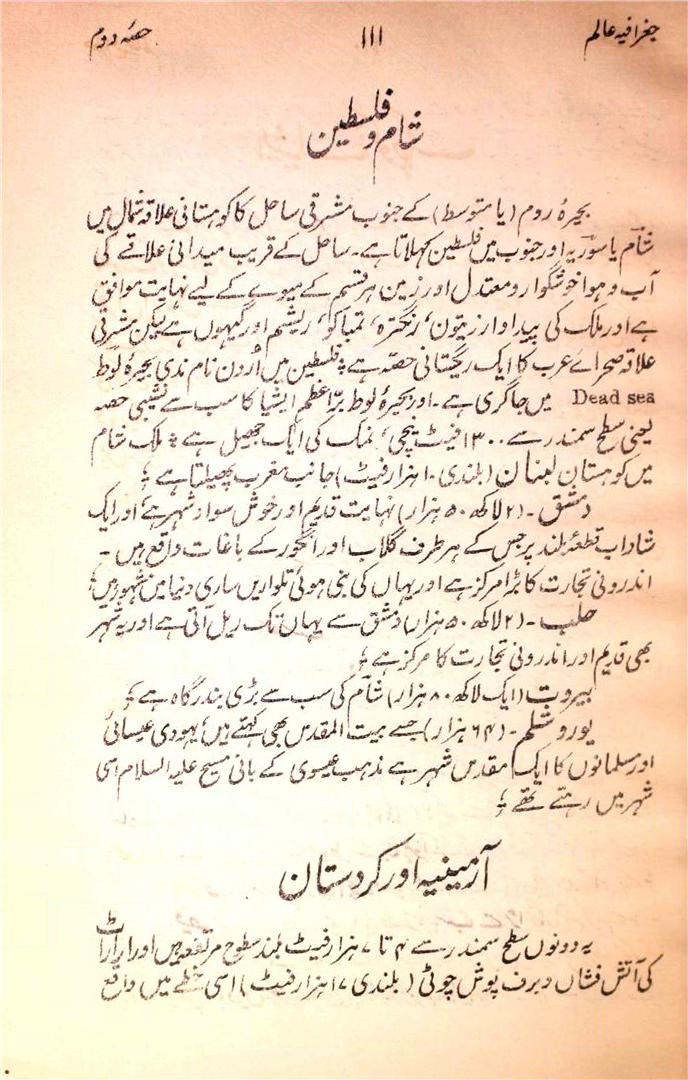 جغرافیہ عالم
۱۱۱
حصّہ دوم
شام و فلسطین
بحیرۂ روم (یا متوسط) کے جنوب مشرقی ساحل کا کوہستانی علاقہ شمال میں
شام یا سوریہ اور جنوب میں فلسطین کہلاتا ہے۔ ساحل کے قریب میدانی علاقے کی
آب و ہوا خوشگوار و معتدل اور زمین ہر قسم کے میوے کے لیے نہایت موافق
ہے اور ملک کی پیداوار زیتون، زنگترہ، تمباکو، ریشم اور گیہوں ہے لیکن مشرقی
علاقہ صحراے عرب کا ایک ریگستانی حصّہ ہے ؛ فلسطین میں اُردن نام ندی بحیرۂ لوط
Dead sea میں جا گری ہے۔ اور بحیرۂ لوط برّ اعظم ایشیا کا سب سے نشیبی حصہ
یعنی سطح سمندر سے ۱۳۰۰ فیٹ نیچی، نمک کی ایک جھیل ہے ؛ ملک شام
میں کوہستان لبنان (بلندی ۱۰ ہزار فیٹ) جانب مغرب پھیلتا ہے ؛
دمشق۔ (۲ لاکھ ۵۰ ہزار) نہایت قدیم اور خوش سواد شہر ہے اور ایک
شاداب قطعۂ بلند پر جس کے ہر طرف گلاب اور انگور کے باغات واقع ہیں۔
اندرونی تجارت کا بڑا مرکز ہے اور یہاں کی بنی ہوئی تلواریں ساری دنیا میں مشہور ہیں ؛
حلب۔ (۲ لاکھ ۵۰ ہزار) دمشق سے یہاں تک ریل آتی ہے اور یہ شہر
بھی قدیم اور اندرونی تجارت کا مرکز ہے ؛
بیروت (ایک لاکھ ۸۰ ہزار) شام کی سب سے بڑی بندرگاہ ہے ؛
یوروشلم۔ (۶۴ ہزار) جسے بیت المقدس بھی کہتے ہیں، یہودی عیسائی
اور مسلمانوں کا ایک مقدس شہر ہے مذہب عیسوی کے بانی مسیح علیہ السلام اسی
شہر میں رہتے تھے ؛
آرمینیہ اور کردستان
یہ دونوں سطح سمندر سے ۴ تا ۷ ہزار فیٹ بلند سطوح مرتفعہ ہیں اور اراراٹ
کی آتش فشاں و برف پوش چوٹی (بلندی ۱۷ ہزار فیٹ) اسی خطے میں واقع